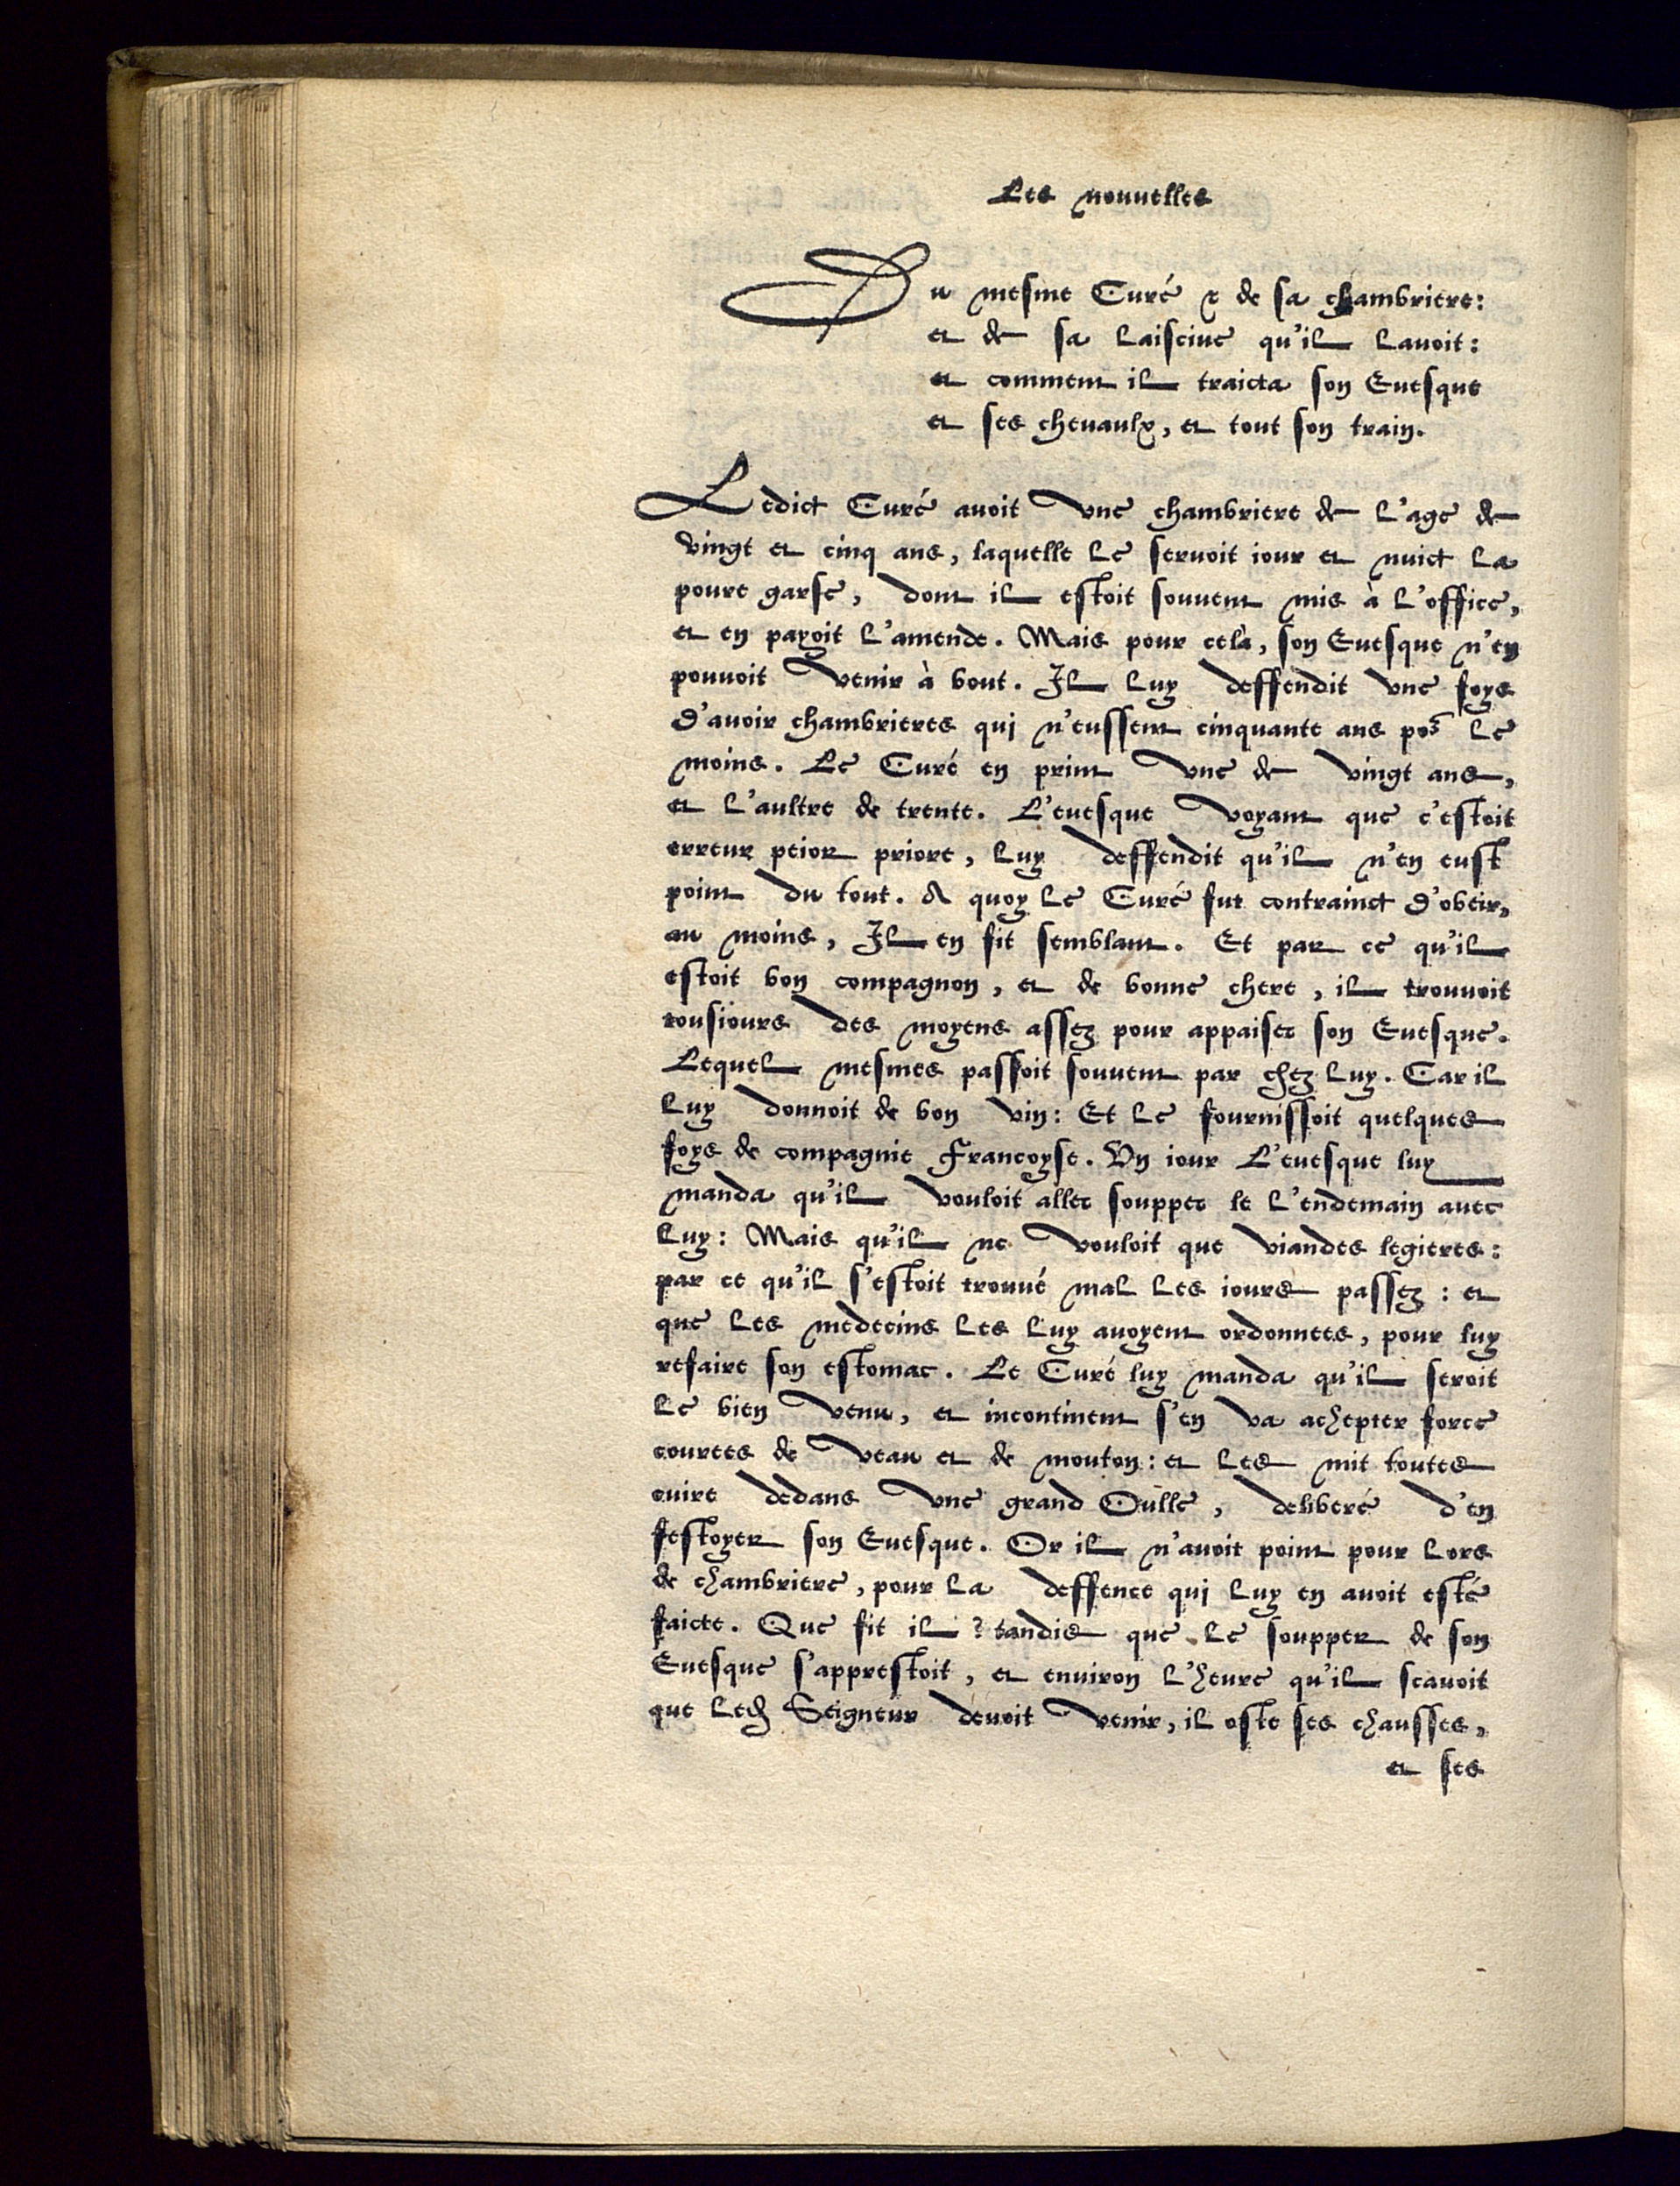 Les nouuelles
Du mesme Curé & de sa chambriere:
et de sa laisciue qu'il lauoit:
et comment il traicta son Euesque
et ses cheuaulx, et tout son train.
Ledict Curé auoit vne chambriere de l'age de
vingt et cinq ans, laquelle le seruoit iour et nuict la
poure garse, dont il estoit souuent mis à l'office,
et en payoit l'amende. Mais pour celà, son Euesque n'en
pouuoit venir à bout. Il luy deffendit vne foys
d'auoir chambrieres qui n'eussent cinquante ans por le
moins. Le Curé en print vne de vingt ans,
et l'aultre de trente. L'euesque voyant que c'estoit
erreur peior priore, luy deffendit qu'il n'en eust
point du tout. A quoy le Curé fut contrainct d'obeir,
au moins, Il en fit semblant. Et par ce qu'il
estoit bon compagnon, et de bonne chere, il trouuoit
tousiours des moyens assez pour appaiser son Euesque.
Lequel mesmes passoit souuent par chez luy. Car il
luy donnoit de bon vin: Et le fournissoit quelques
foys de compagnie Francoyse. Vn iour L'euesque luy
manda qu'il vouloit aller soupper le l'endemain auec
luy: Mais qu'il ne vouloit que viandes legieres:
par ce qu'il s'estoit trouué mal les iours passez: et
que les medecins les luy auoyent ordonnees, pour luy
refaire son estomac. Le Curé luy manda qu'il seroit
le bien venu, et incontinent s'en va achepter force
courees de veau et de mouton: et les mit toutes
cuire dedans vne grand Oulle, deliberé d'en
festoyer son Euesque. Or il n'auoit point pour lors
de chambriere, pour la deffence qui luy en auoit esté
faicte. Que fit il? tandis que le soupper de son
Euesque s'apprestoit, et enuiron l'heure qu'il scauoit
que led Seigneur deuoit venir, il oste ses chausses,
et ses